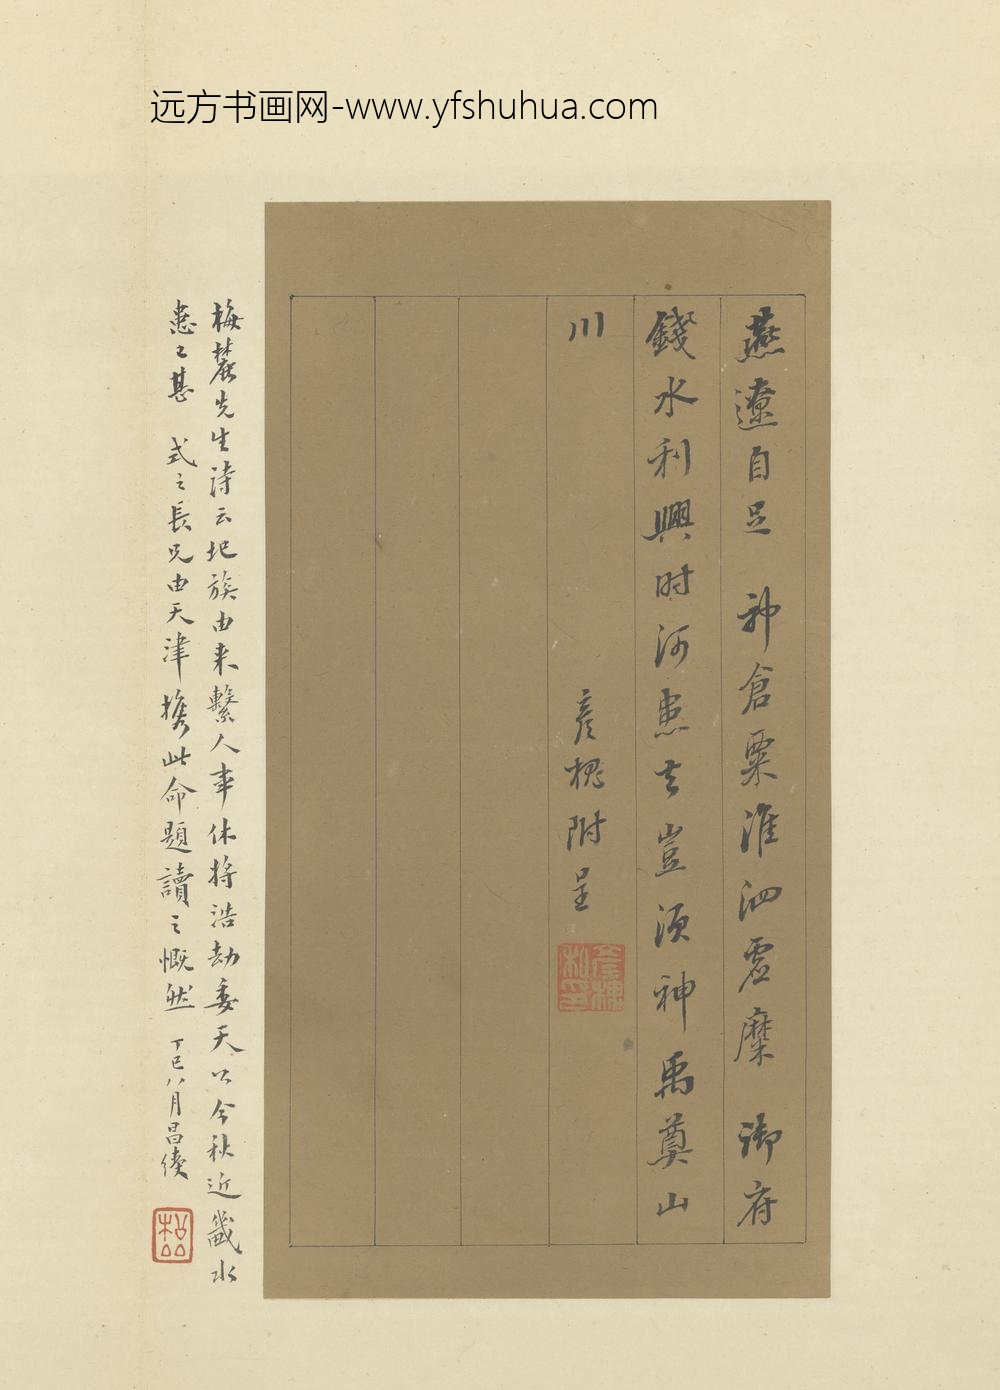 远方书画网-www.yfshuhua.com
燕遼自足 神倉粟淮泗虛糜 御府
錢水利興时河患去豈須神禹奠山
川
彦槐附呈
梅麓先生詩云圯族由来繫人事休將浩劫委天公今秋近畿水
患之甚 式之長兄由天津攜此命題讀之慨然 丁巳八月昌綬